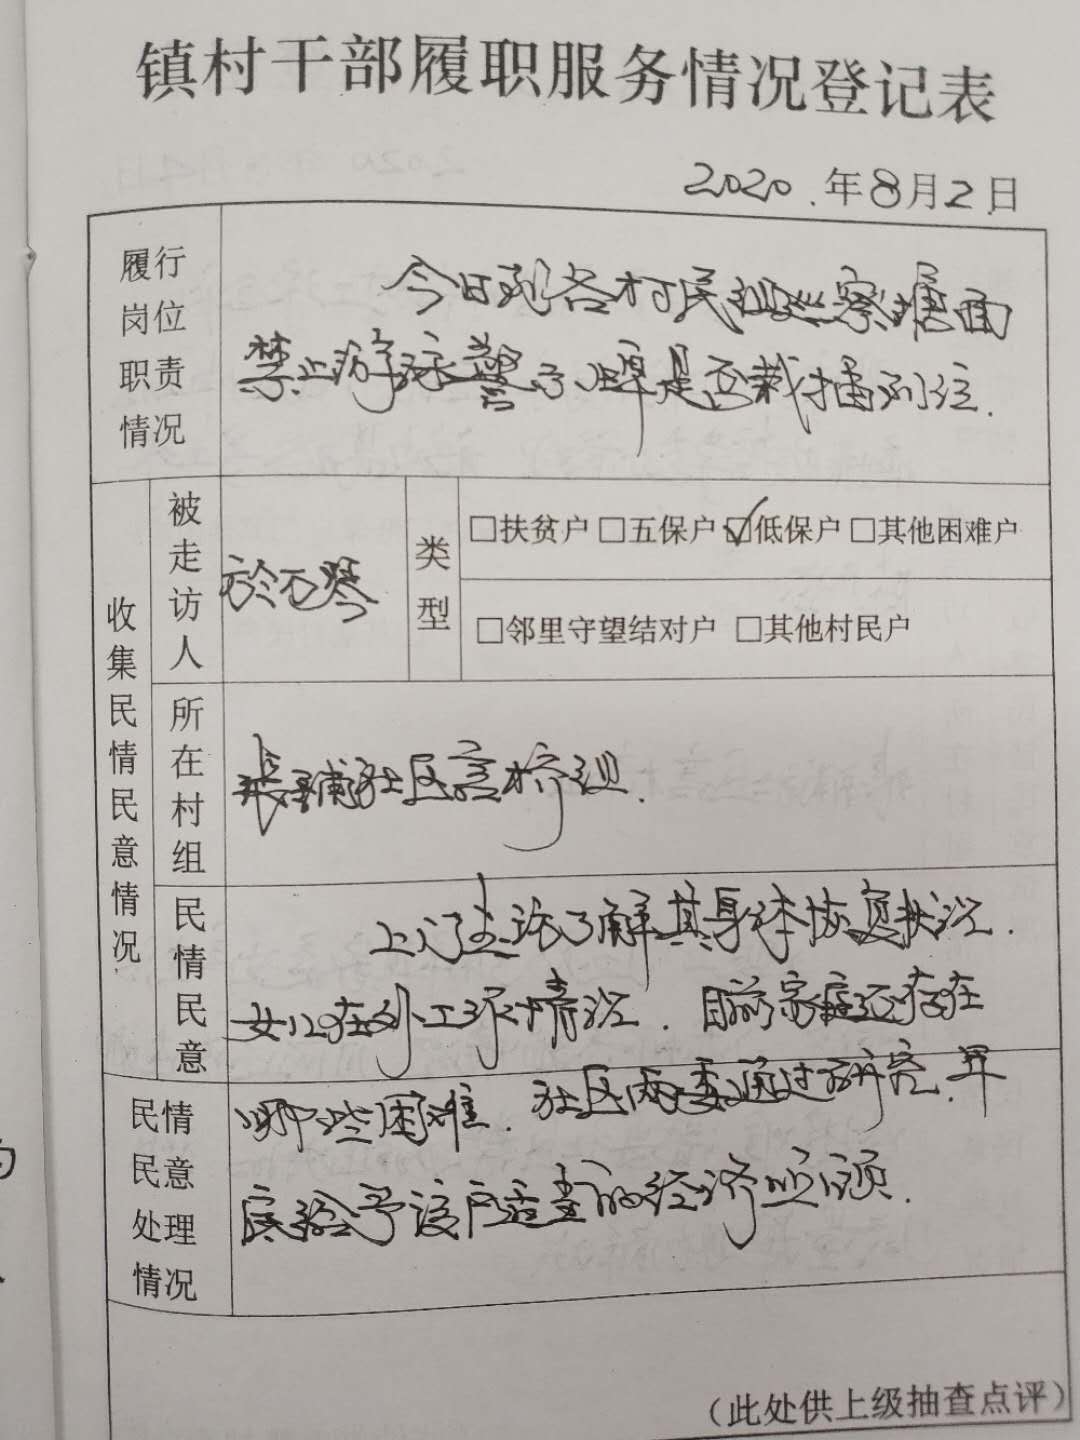 镇村干部履职服务情况登记表
2020.年8月2日
履行
岗位
职责
情况
今日到各村民组巡察塘面
禁止游泳警示牌是否栽插到位.
收集民情民意情况
被走访人
於石琴
类型
□扶贫户 □五保户 ☑低保户 □其他困难户
□邻里守望结对户 □其他村民户
所在村组
张铺社区宫桥组.
民情民意
上门走访了解其身体恢复状况.
女儿在外工作情况.目前家庭还存在
民情
民意
处理
情况
哪些困难.社区两委通过研究.年
底给予该户适当的经济照顾.
(此处供上级抽查点评)